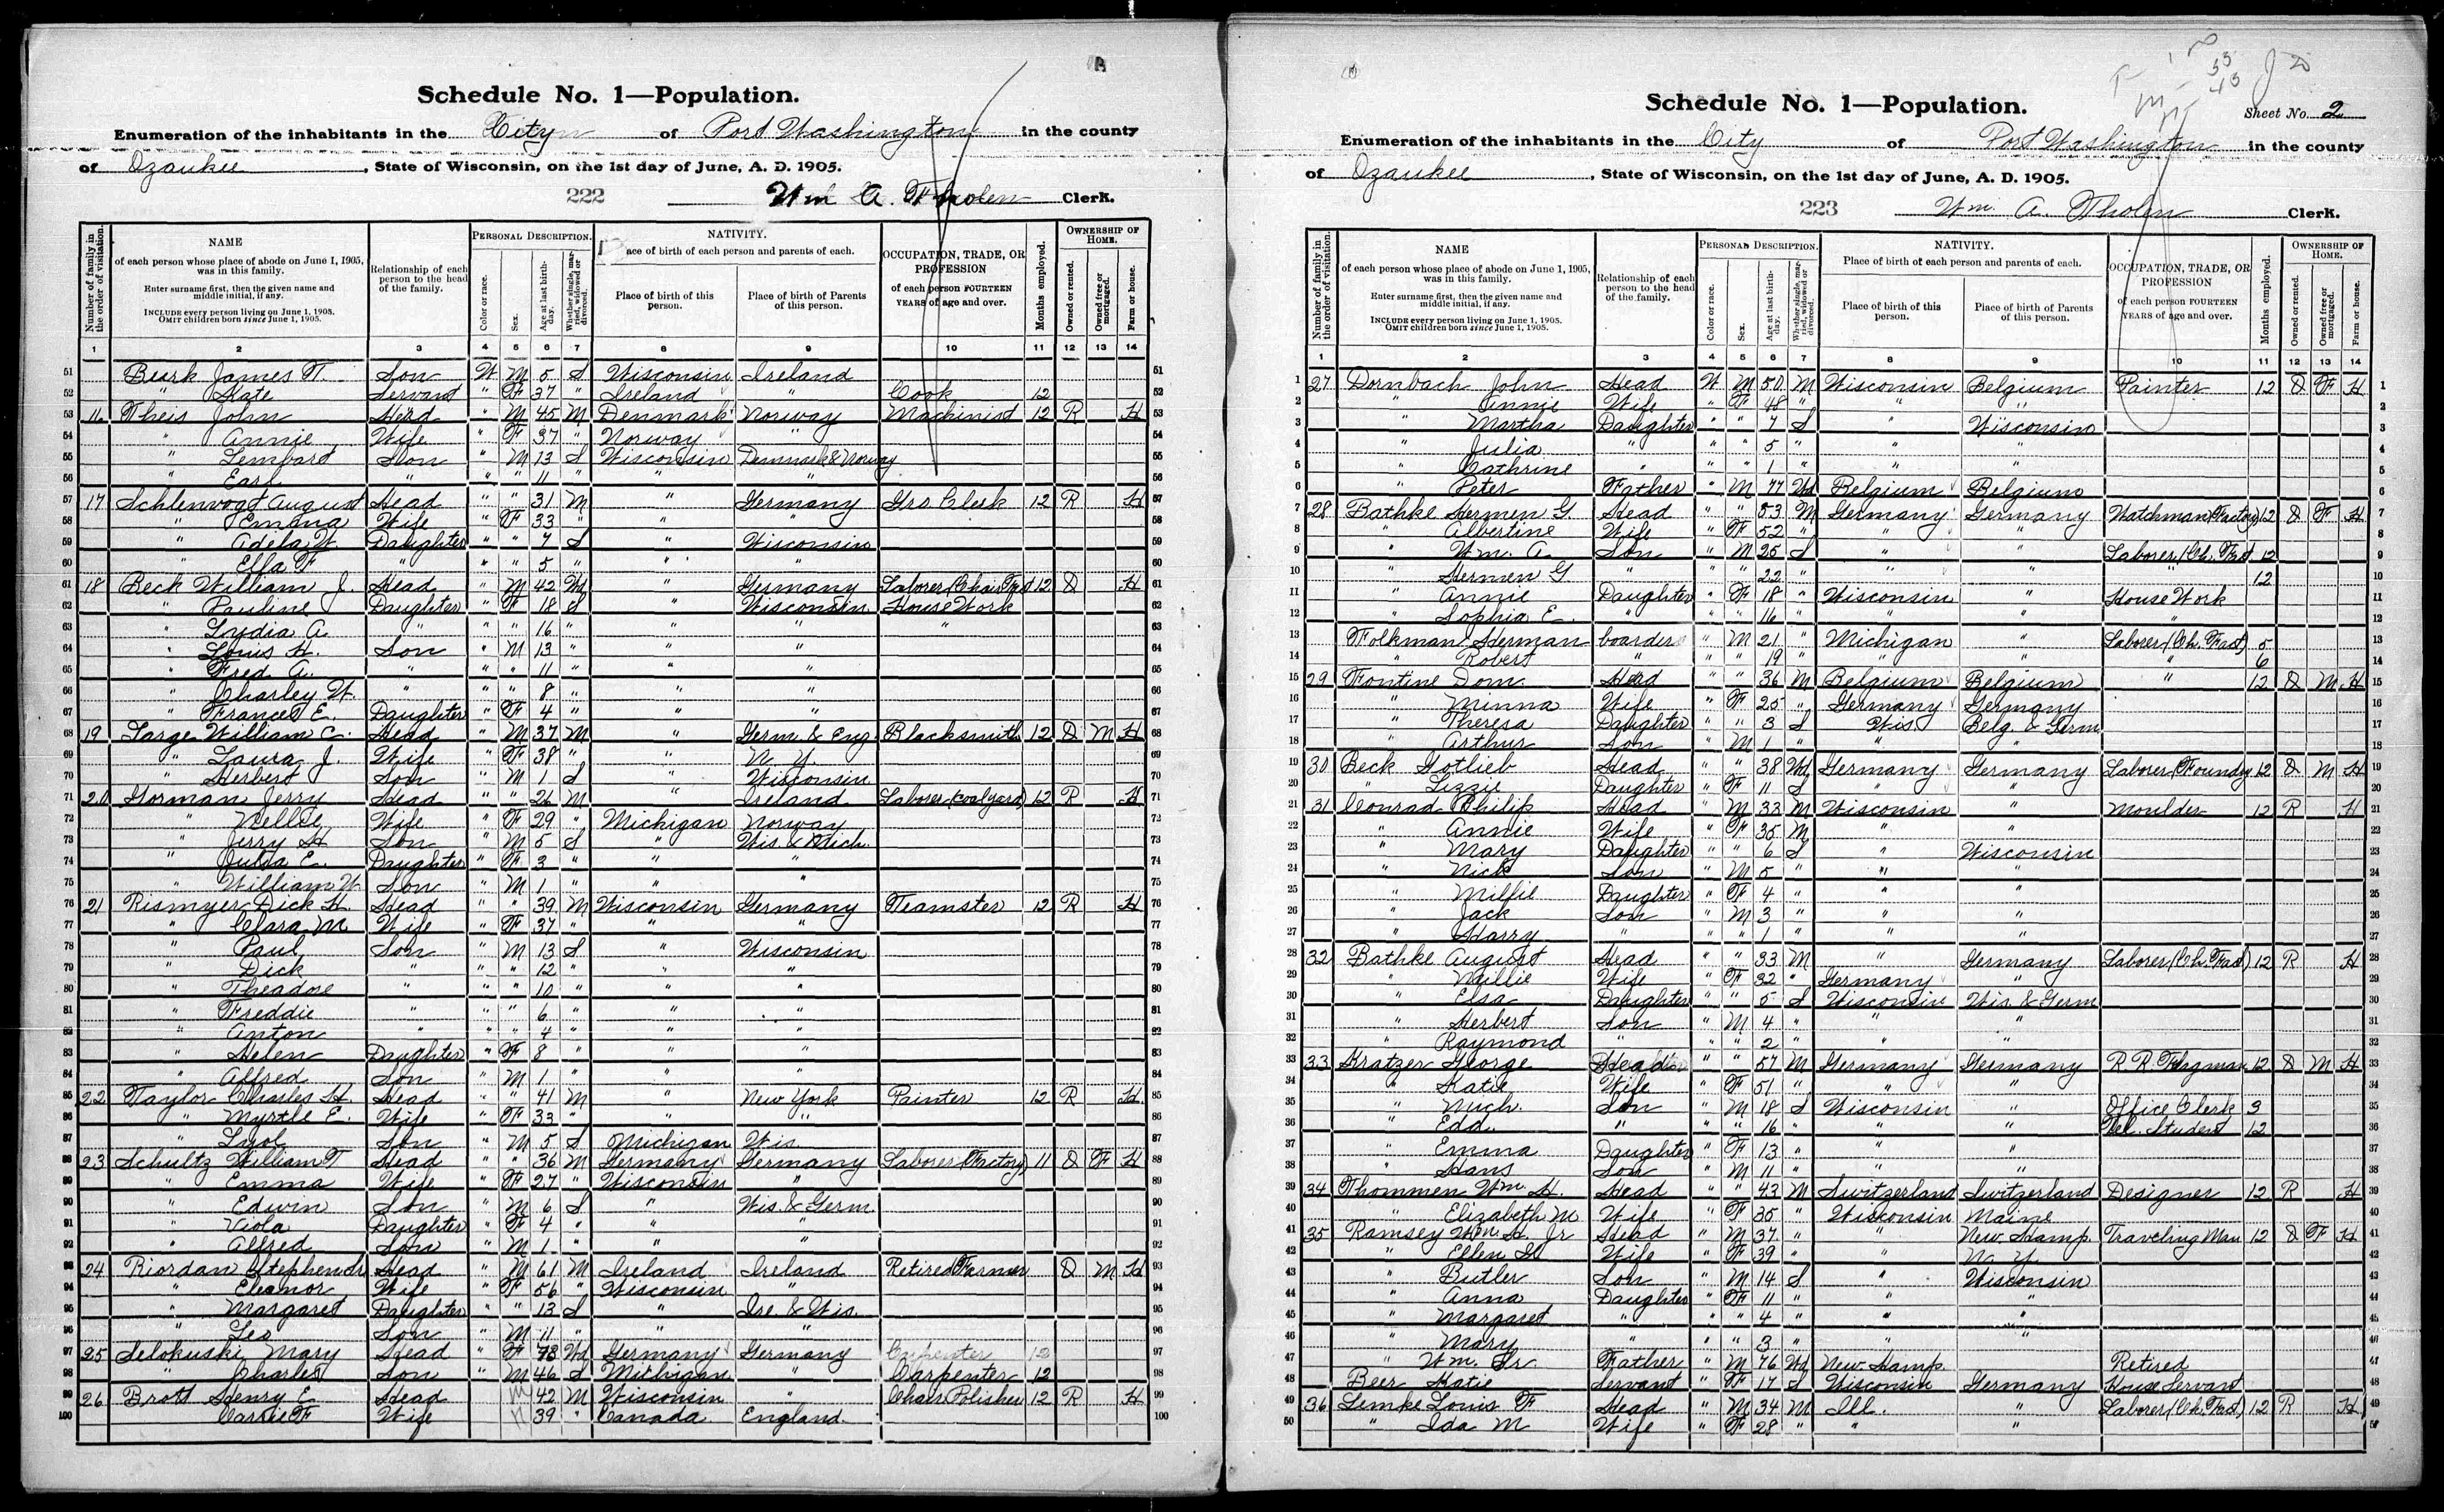 Schedule No. 1—Population.
Enumeration of the inhabitants in the City of Port Washington in the county
of Ozaukee, State of Wisconsin, on the 1st day of June, A. D. 1905.
222 Wm A. Tholen Clerk.
Number of family in the order of visitation.
NAME
of each person whose place of abode on June 1, 1905, was in this family.
Enter surname first, then the given name and middle initial, if any.
INCLUDE every person living on June 1, 1905.
OMIT children born since June 1, 1905.
Relationship of each person to the head of the family.
PERSONAL DESCRIPTION.
Color or race.
Sex.
Age at last birth-day.
Whether single, mar-ried, widowed or divorced.
NATIVITY.
Place of birth of each person and parents of each.
Place of birth of this person.
Place of birth of Parents of this person.
OCCUPATION, TRADE, OR PROFESSION
of each person FOURTEEN YEARS of age and over.
Months employed.
OWNERSHIP OF HOME.
Owned or rented.
Owned free or mortgaged.
Farm or house.
1 2 3 4 5 6 7 8 9 10 11 12 13 14
51 James T. Son W M 5 S Wisconsin Ireland 51
52 " Kate Servant " F 37 " Ireland " Cook 12 52
53 Theis John Head " M 45 M Denmark Norway Machinist 12 R H 53
54 " Annie Wife " F 37 " Norway 54
55 " Son " M 13 S Wisconsin Denmark & Norway 55
56 " Earl " " " 11 " " " 56
57 17 Schlenvogt August Head " " 31 M " Germany Gro Clerk 12 R H 57
58 " Emma Wife " F 33 " " " 58
59 " Adela W. Daughter " " 7 S " Wisconsin 59
60 " Ella F " " " 5 " " " 60
61 18 Beck William J. Head " M 42 Wd " Germany Laborer (Chair Fact 12 O H 61
62 " Pauline Daughter " F 18 S " Wisconsin House Work 62
63 " Lydia A " " " 16 " " " " 63
64 " Louis H. Son " M 13 " " " 64
65 " Fred A. " " " 11 " " " 65
66 " Charley W. " " " 8 " " " 66
67 " Frances E. Daughter " F 4 " " " 67
68 19 Large William C. Head " M 37 M " Germ. & Eng. Blacksmith 12 O M H 68
69 " Laura J. Wife " F 38 " " N. Y. 69
70 " Herbert Son " M 1 S " Wisconsin 70
71 20 Gorman Jerry Head " " 26 M " Ireland Laborer (coalyard) 12 R H 71
72 " Nellie Wife " F 29 " Michigan Norway 72
73 " Jerry H Son " M 5 S " Wis. & Mich. 73
74 " Julia E. Daughter " F 3 " " " 74
75 " William W. Son " M 1 " " " 75
76 21 Rismyer Dick H. Head " " 39 M Wisconsin Germany Teamster 12 R H 76
77 " Clara M Wife " F 37 " " " 77
78 " Paul Son " M 13 S " Wisconsin 78
79 " Dick " " " 12 " " " 79
80 " Theadore " " " 10 " " " 80
81 " Freddie " " " 6 " " " 81
82 " Anton " " " 4 " " " 82
83 " Helen Daughter " F 8 " " " 83
84 " Alfred Son " M 1 " " " 84
85 22 Taylor Charles H. Head " " 41 M " New York Painter 12 R H 85
86 " Myrtle E. Wife " F 33 " " " 86
87 " Son " M 5 S Michigan Wis. 87
88 23 Schultz William T Head " " 36 M Germany Germany Laborer (Factory) 11 O F H 88
89 " Emma Wife " F 27 " Wisconsin " 89
90 " Edwin Son " M 6 S " Wis. & Germ 90
91 " Viola Daughter " F 4 " " " 91
92 " Alfred Son " M 1 " " " 92
93 24 Riordan Stephen Head " M 61 M Ireland Ireland Retired Farmer O M H 93
94 " Eleanor Wife " F 56 " Wisconsin " 94
95 " Margaret Daughter " " 13 S " Ire. & Wis. 95
96 " Leo Son " M 11 " " " 96
97 25 Selokuski Mary Head " F 78 Wd Germany Germany Carpenter 12 97
98 " Charles Son " M 46 S Michigan " Carpenter 12 98
99 26 Brott Henry E. Head M 42 M Wisconsin " Chair Polisher 12 R H 99
100 Carrie F Wife 39 " Canada England. 100
Schedule No. 1—Population.
Sheet No. 2
Enumeration of the inhabitants in the City of Port Washington in the county
of Ozaukee, State of Wisconsin, on the 1st day of June, A. D. 1905.
223 Wm. A. Tholen Clerk.
Number of family in the order of visitation.
NAME
of each person whose place of abode on June 1, 1905, was in this family.
Enter surname first, then the given name and middle initial, if any.
INCLUDE every person living on June 1, 1905.
OMIT children born since June 1, 1905.
Relationship of each person to the head of the family.
PERSONAL DESCRIPTION.
Color or race.
Sex.
Age at last birth-day.
Whether single, mar-ried, widowed or divorced.
NATIVITY.
Place of birth of each person and parents of each.
Place of birth of this person.
Place of birth of Parents of this person.
OCCUPATION, TRADE, OR PROFESSION
of each person FOURTEEN YEARS of age and over.
Months employed.
OWNERSHIP OF HOME.
Owned or rented.
Owned free or mortgaged.
Farm or house.
1 2 3 4 5 6 7 8 9 10 11 12 13 14
1 27 Dornbach John Head W M 50 M Wisconsin Belgium Painter 12 O F H 1
2 " Annie Wife " F 48 " " " 2
3 " Martha Daughter " " 7 S " Wisconsin 3
4 " Julia " " " 5 " " " 4
5 " Cathrine " " " 1 " " " 5
6 " Peter Father " M 77 Wd Belgium Belgium 6
7 28 Bathke Hermen G. Head " " 53 M Germany Germany Watchman (Factory) 12 O F H 7
8 " Albertine Wife " F 52 " " " 8
9 " Wm. A. Son " M 25 S " " Laborer (Ch. Fact 12 9
10 " Hermen G " " " 22 " " " " 12 10
11 " Annie Daughter " F 18 " Wisconsin " House Work 11
12 " Sophia E. " " " 16 " " " " 12
13 Folkman Herman boarder " M 21 " Michigan " Laborer (Ch. Fact) 5 13
14 " Robert " " " 19 " " " " 6 14
15 29 Fontine Dom. Head " " 36 M Belgium Belgium " 12 O M H 15
16 " Minna Wife " F 25 " Germany Germany 16
17 " Theresa Daughter " " 3 S Wis. Belg. & Germ 17
18 " Arthur Son " M 1 " " " 18
19 30 Beck Gotlieb Head " " 38 Wd Germany Germany Laborer (Foundry 12 O M H 19
20 " Lizzie Daughter " F 11 S " " 20
21 31 Conrad Philip Head " M 33 M Wisconsin " Moulder 12 R H 21
22 " Annie Wife " F 35 M " " 22
23 " Mary Daughter " " 6 S " Wisconsin 23
24 " Nick Son " M 5 " " " 24
25 " Millie Daughter " F 4 " " " 25
26 " Jack Son " M 3 " " " 26
27 " Harry " " " 1 " " " 27
28 32 Bathke August Head " " 33 M " Germany Laborer (Ch. Fact) 12 R H 28
29 " Millie Wife " F 32 " Germany " 29
30 " Elsa Daughter " " 5 S Wisconsin Wis. & Germ 30
31 " Herbert Son " M 4 " " " 31
32 " Raymond " " " 2 " " " 32
33 33 Kratzer George Head " " 57 M Germany Germany R. R. Flagman 12 O M H 33
34 " Katie Wife " F 51 " " " 34
35 " Mich. Son " M 18 S Wisconsin " Office Clerk 3 35
36 " Edd. " " " 16 " " " Tel. Student 12 36
37 " Emma Daughter " F 13 " " " 37
38 " Hans Son " M 11 " " " 38
39 34 Thommen Wm. H. Head " " 43 M Switzerland Switzerland Designer 12 R H 39
40 " Elizabeth M Wife " F 35 " Wisconsin Maine 40
41 35 Ramsey Wm. H. Jr Head " M 37 " " New Hamp. Traveling Man 12 O F H 41
42 " Ellen Wife " F 39 " " N. Y. 42
43 " Butler Son " M 14 S " Wisconsin 43
44 " Anna Daughter " F 11 " " " 44
45 " Margaret " " " 4 " " " 45
46 " Mary " " " 3 " " " 46
47 " Wm. Sr Father " M 76 Wd New Hamp. Retired 47
48 Beer Katie Servant " F 17 S Wisconsin Germany House Servant 48
49 36 Lemke Louis F Head " M 34 M Ill. " Laborer (Ch. Fact) 12 R H 49
50 " Ida M Wife " F 28 " " " 50